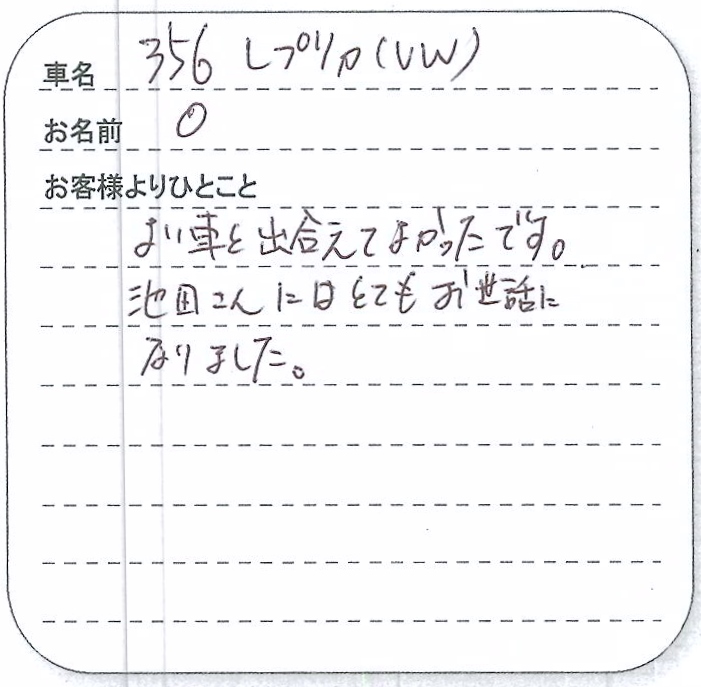 車名 356 レプリカ(VW)
お名前 O
お客様よりひとこと
よい車と出合えてよかったです。
池田さんにはとてもお世話に
なりました。